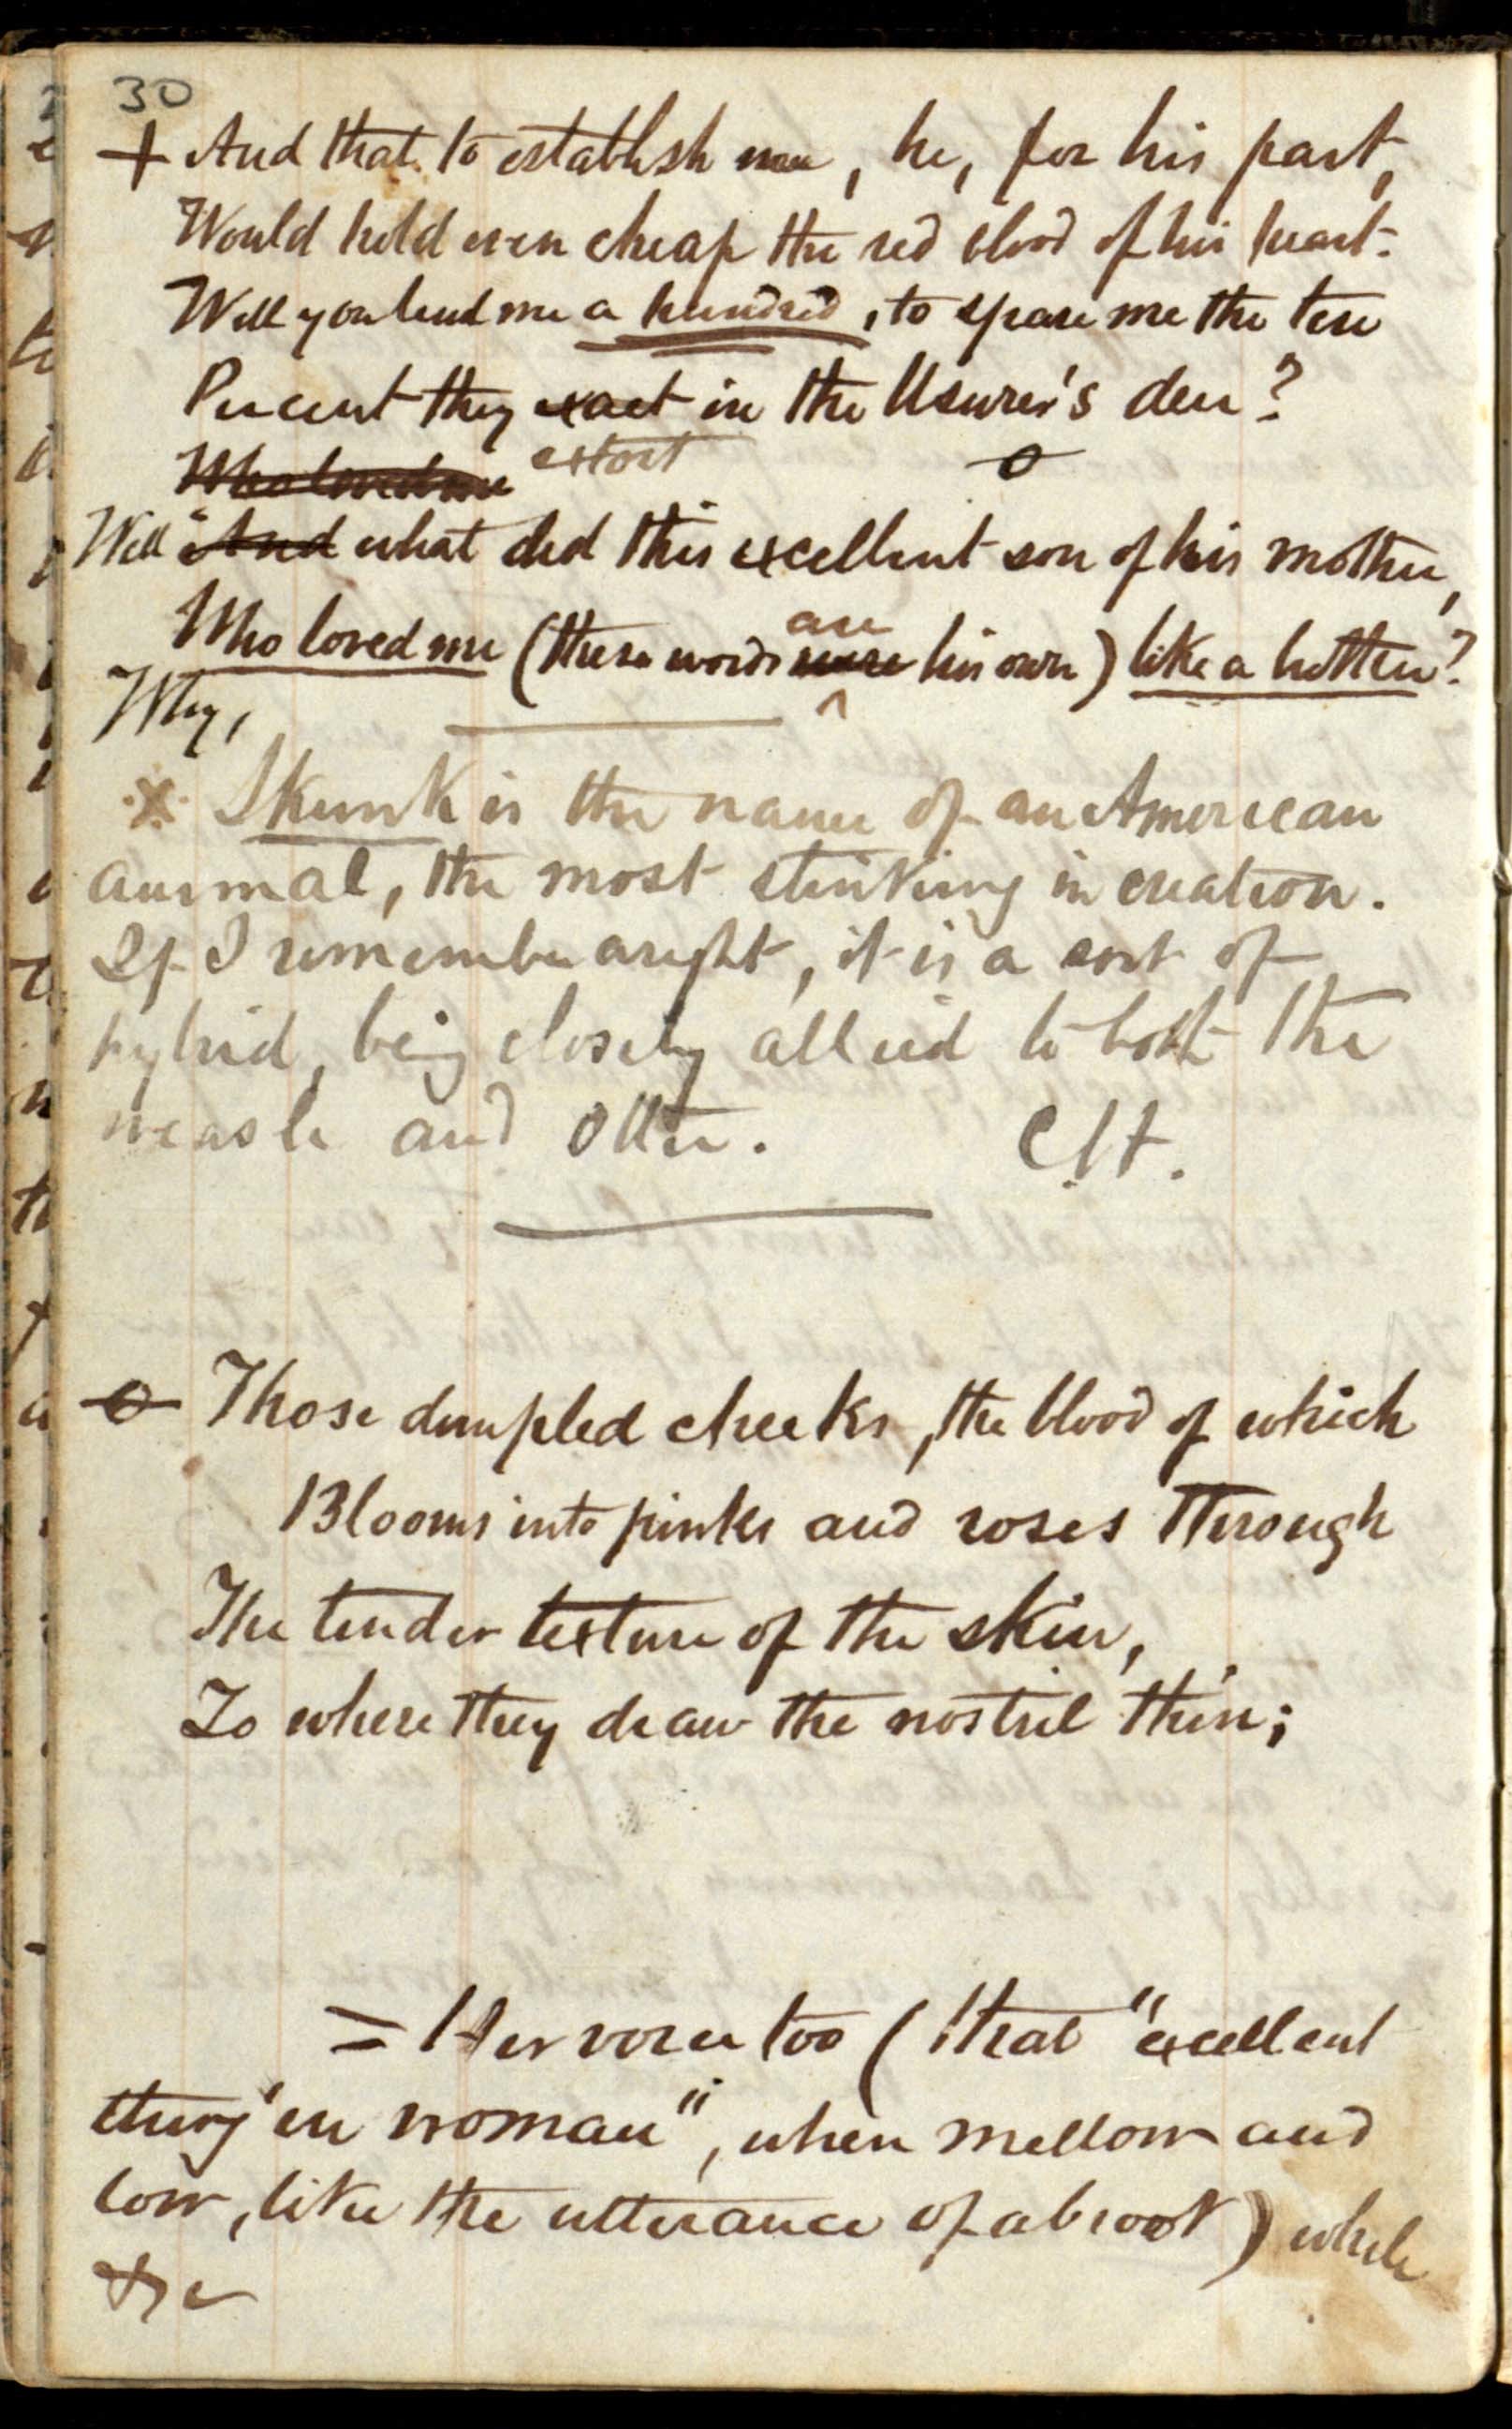 30
+ And that to establish me, he, for his part,
Would hold even cheap the red blood of his heart.
Will you lend me a hundred, to spare me the ten
Percent they exact in the Usurer's den?
Who loved me extort
o
Well "And what did this excellent son of his mother,
are
Who loved me (these words were his own) like a hotten?
Why,
x Skunk is the name of an American
animal, the most stinking in creation.
If I remember aright, it is a sort of
hybrid, being closely allied to both the
weasle and otter. C.H.
o Those dimpled cheeks, the blood of which
Blooms into pinks and roses through
The tender texture of the skin,
To where they draw the nostril thin;
= Her voice too (that "excellent
thing in woman", when mellow and
low, like the utterance of a brook) while
&c